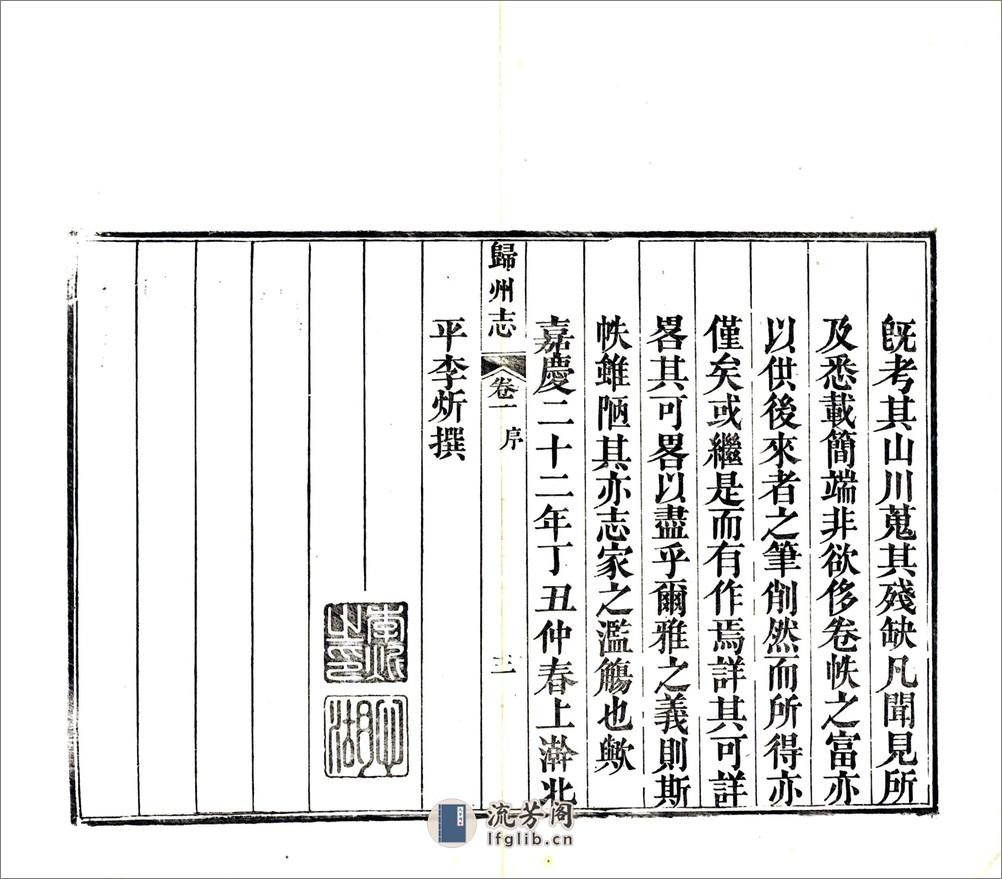 既考其山川蒐其殘缺凡聞見所
及悉載簡端非欲侈卷帙之富亦
以供後來者之筆削然而所得亦
僅矣或繼是而有作焉詳其可詳
畧其可畧以盡乎爾雅之義則斯
帙雖陋其亦志家之濫觴也歟
嘉慶二十二年丁丑仲春上澣北
歸州志 卷一 序 三
平李炘撰
李炘之印
流芳阁
lfglib.cn